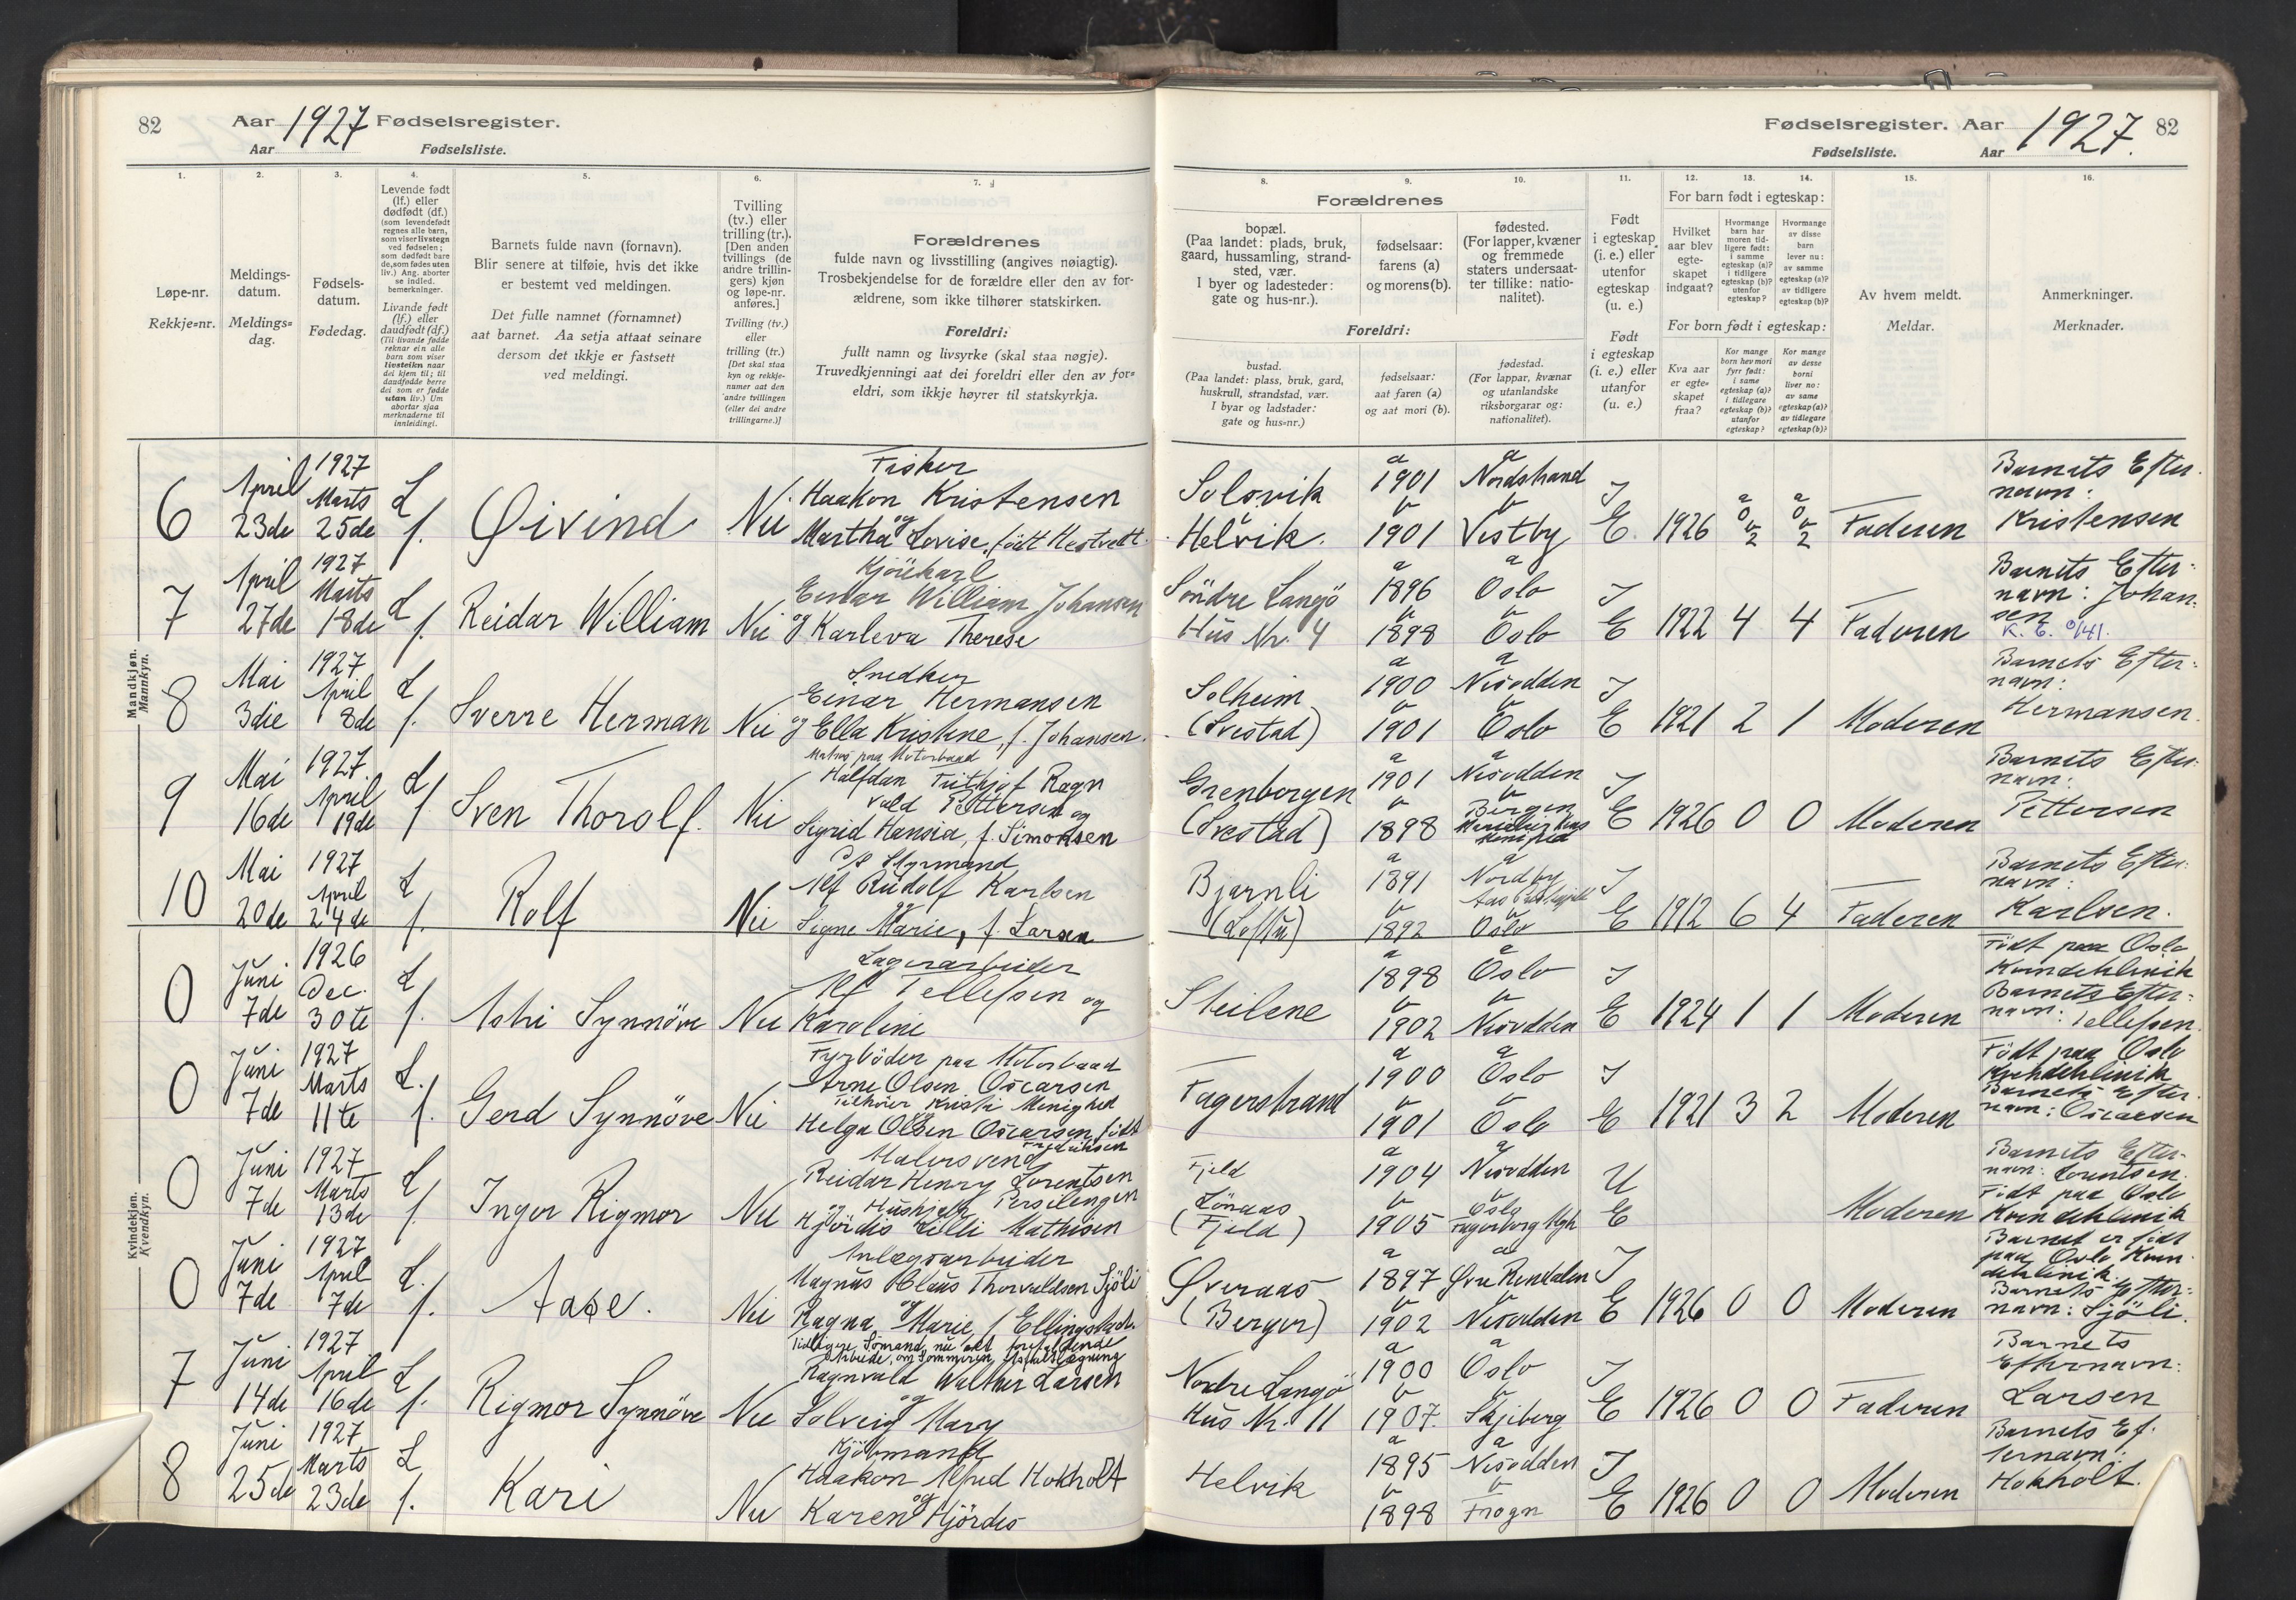 82
Aar 1927 Fødselsregister.
Aar
Fødselsliste.
Fødselsregister. Aar 1927. 82
Fødselsliste. Aar
1.
2.
3.
4.
5.
6.
7.
Løpe-nr.
Rekkje=nr.
Meldings-
datum.
Meldings=
dag.
Fødsels-
datum.
Fødedag.
Levende født
(lf.) eller
dødfødt (df.)
(som levendefødt
regnes alle barn,
som viser livstegn
ved fødselen;
som dødfødt bare
de, som fødes uten
liv.) Ang. aborter
se indled.
bemerkninger.
Livande født
(lf.) eller
daudfødt (df.)
(Til livande fødde
reknar ein alle
barn som viser
livsteikn naar
dei kjem til; til
daudfødde berre
dei som er fødde
utan liv.) Um
abortar sjaa
merknaderne til
innleidingi.
Barnets fulde navn (fornavn).
Blir senere at tilføie, hvis det ikke
er bestemt ved meldingen.
Det fulle namnet (fornamnet)
aat barnet. Aa setja attaat seinare
dersom det ikkje er fastsett
ved meldingi.
Tvilling
(tv.) eller
trilling (tr.).
[Den anden
tvillings (de
andre trillin-
gers) kjøn
og løpe-nr.
anføres.]
Tvilling (tv.)
eller
trilling (tr.)
[Det skal staa
kyn og rekkje-
numer aat den
andre tvillingen
(eller dei andre
trillingarne.)]
Forældrenes
fulde navn og livsstilling (angives nøiagtig).
Trosbekjendelse for de forældre eller den av for-
ældrene, som ikke tilhører statskirken.
Foreldri:
fullt namn og livsyrke (skal staa nøgje).
Truvedkjenningi aat dei foreldri eller den av for=
eldri, som ikkje høyrer til statskyrkja.
8.
9.
10.
11.
12.
13.
14.
15.
16.
Forældrenes
bopæl.
(Paa landet: plads, bruk,
gaard, hussamling, strand-
sted, vær.
I byer og ladesteder:
gate og hus-nr.).
fødselsaar:
farens (a)
og morens (b).
fødested.
(For lapper, kvæner
og fremmede
staters undersaat-
ter tillike: natio-
nalitet).
Foreldri:
bustad.
(Paa landet: plass, bruk, gard,
huskrull, strandstad, vær.
I byar og ladstader:
gate og hus=nr.)
fødselsaar:
aat faren (a)
og aat mori (b).
fødestad.
(For lappar, kvænar
og utanlandske
riksborgarar og:
nationalitet).
Født
i egteskap
(i. e.) eller
utenfor
egteskap
(u. e.)
Født
i egteskap
(i. e.) eller
utanfor
(u. e.)
For barn født i egteskap:
Hvilket
aar blev
egte-
skapet
indgaat?
Hvormange
barn har
moren tid-
ligere født:
i samme
egteskap (a)?
i tidligere
egteskap (b)?
utenfor
egteskap?
Hvormange
av disse
barn
lever nu:
av samme
egteskap (a)?
av tidligere
egteskap (b)?
For born født i egteskap:
Kva aar
er egte=
skapet
fraa?
Kor mange
born hev mori
fyrr født:
i same
egteskap (a)?
i tidlegare
egteskap (b)?
utanfor
egteskap?
Kor mange
av desse
borni
liver no:
av same
egteskap (a)?
av tidlegare
egteskap (b)?
Av hvem meldt.
Meldar.
Anmerkninger.
Merknader.
Mandkjøn.
Mannkyn.
6 April 23de 1927 Marts 25de L f. Øivind Nei
Fisker
Haakon Kristensen
og
Martha Lovise, født Hestvett.
Solsvik
Helvik.
a 1901 b 1901
a Nordstrand
b Vestby
I E. 1926 a 0 b 2 a 0 b 2 Faderen
Barnets Efter-
navn:
Kristensen
7 April 27de 1927 Marts 18de L f. Reidar William Nei
Einar William Johansen
og Karleva Therese
Söndre Langö
Hus Nr. 4
a 1896 b 1898
a Oslo
b Oslo
I E 1922 4 4 Faderen
Barnets Efter-
navn: Johan-
sen
8 Mai 3die 1927 April 8de L f. Sverre Herman Nei
Snedker
Einar Hermansen
og Ella Kristine, f. Johansen.
Solheim
(Svestad)
a 1900 b 1901
a Nesodden
b Oslo
I E 1921 2 1 Moderen
Barnets Efter-
navn:
Hermansen.
9 Mai 16de 1927 April 19de L f. Sven Thorolf. Nei
Matros paa Motorbaad
Halfdan Frithjof Ragn
vald Pettersen og
Sigrid Hansia, f. Simonsen
Grenborgen
(Svestad)
a 1901 b 1898
a Nesodden
b Bergen
I E 1926 0 0 Moderen
Barnets Efter-
navn:
Pettersen
10 Mai 20de 1927 April 24de L f. Rolf Nei
Styrmand
Alf Rudolf Karlsen
og
Signe Marie, f. Larsen
Bjarnli
a 1891 b 1892
a Nordby
b Oslo
I E 1912 6 4 Faderen
Barnets Efter-
navn:
Karlsen.
Kvindekjøn.
Kvendkyn.
0 Juni 7de 1926 Dec. 30te L f. Astri Synnöve Nei
Lagerarbeider
Alf Tellefsen og
Karoline
Steilene
a 1898 b 1902
a Oslo
b Nesodden
I E 1924 1 1 Moderen
Födt paa Oslo
Kvindeklinik
Barnets Efter-
navn: Tellefsen.
0 Juni 7de 1927 Marts 11te L. f. Gerd Synnöve Nei
Fyrböder paa Motorbaad
Arne Olsen Oscarsen
Tilhører Kristi Menighed
Helga Olsen Oscarsen, födt
Fredriksen
Fagerstrand
a 1900 b 1901
a Oslo
b Oslo
I E 1921 3 2 Moderen
Födt paa Oslo
Kvindeklinik
Barnets Efter-
navn: Oscarsen
0 Juni 7de 1927 Marts 13de L f. Inger Rigmor Nei
Malersvend
Reidar Henry Lorentsen
og Hushjelp Persilengen
Hjördis Lilli Mathisen
Fjeld
Lönaas
(Fjeld)
a 1904 b 1905
a Nesodden
b Oslo
U E Moderen
Barnets Efter-
navn: Lorentsen.
Födt paa Oslo
Kvindeklinik
0 Juni 7de 1927 April 7de L. f. Aase. Nei
Anlægsarbeider
Magnus Olaus Thorvaldsen Sjöli
og
Ragna Marie, f. Ellingstad.
Øveraas
(Berger)
a 1897 b 1902
a Øvre Rendalen
b Nesodden
I E 1926 0 0 Moderen
Barnet er födt
paa Oslo Kvin-
deklinik
Barnets Efter-
navn: Sjöli.
7 Juni 14de 1927 April 16de L f. Rigmor Synnöve Nei
Tidligere Sömand, nu alt forefaldende
Arbeide, om Sommeren Asfaltlægning
Ragnvald Walther Larsen
og
Solveig Mary
Nordre Langö
Hus Nr. 11
a 1900 b 1907.
a Oslo
b Skjeberg
I E 1926 0 0 Faderen
Barnets
Efternavn:
Larsen
8 Juni 25de 1927 Marts 23de L f. Kari Nei
Kjöbmand
Haakon Alfred Hokholt
og
Karen Hjördis
Helvik
a 1895 b 1898
a Nesodden
b Frogn
I E 1926 0 0 Moderen
Barnets Ef-
ternavn:
Hokholt.